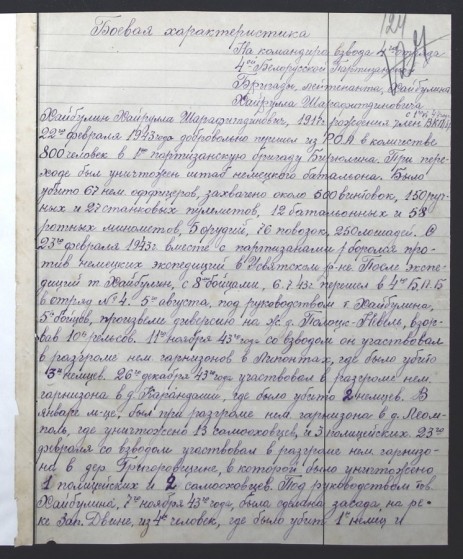 124
Боевая характеристика
На командира взвода 4го отряда
4ой Белорусской Партизанской
Бригады, лейтенанта, Хайбулина
Хайрула Шарафитдиновича
Хайбулин Хайрула Шарафитдинович, 1917г. рождения член ВКП(б)
22го февраля 1943 года добровольно перешел из Р.О.А в количестве
800 человек в 1ую партизанскую бригаду Бирюлина. При пере-
ходе был уничтожен штаб немецкого батальона. Было
убито 67 нем. оффицеров, захвачено около 500 винтовок, 150 руч-
ных и 27 станковых пулиметов, 12 батальонных и 58
ротных минометов, 5 орудий, 76 повозок, 250 лошадей. С
23го февраля 1943г. вместе с партизанами боролся про-
тив немецких экспедиций в Освятском р-не. После экспе-
диций т. Хайбулин, с 8ю бойцами, 6.7.43г. перешел в 4ую Б.П.Б
в отряд № 4. 5го августа, под руководством т. Хайбулина,
5ю бойцов, произвели диверсию на ж.д. Полоцк-Невель, взор-
вав 10ть рельсов. 11го ноября 43го года со взводом он участвовал
в разгроме нем. гарнизонов в Липонтах, где было убито
13ть немцев. 26го декабря 43го года участвовал в разгроме нем.
гарнизона в д. Карандаши, где было убито 2 немцев. В
январе м-це был при разгроме нем. гарнизона в д. Леом-
поль, где уничтожено 13 самооховцев, и 3 полицейских. 23го
февраля со взводом участвовал в разгроме нем. гарнизо-
на в дер. Григоровщине, в которой было уничтожено
1 полицейских и 2 самооховцев. Под руководством тов.
Хайбулина, 7го ноября 43го года, была сделана засада, на ре-
ке Зап. Двине, из 4х человек, где было убит 1н немец и